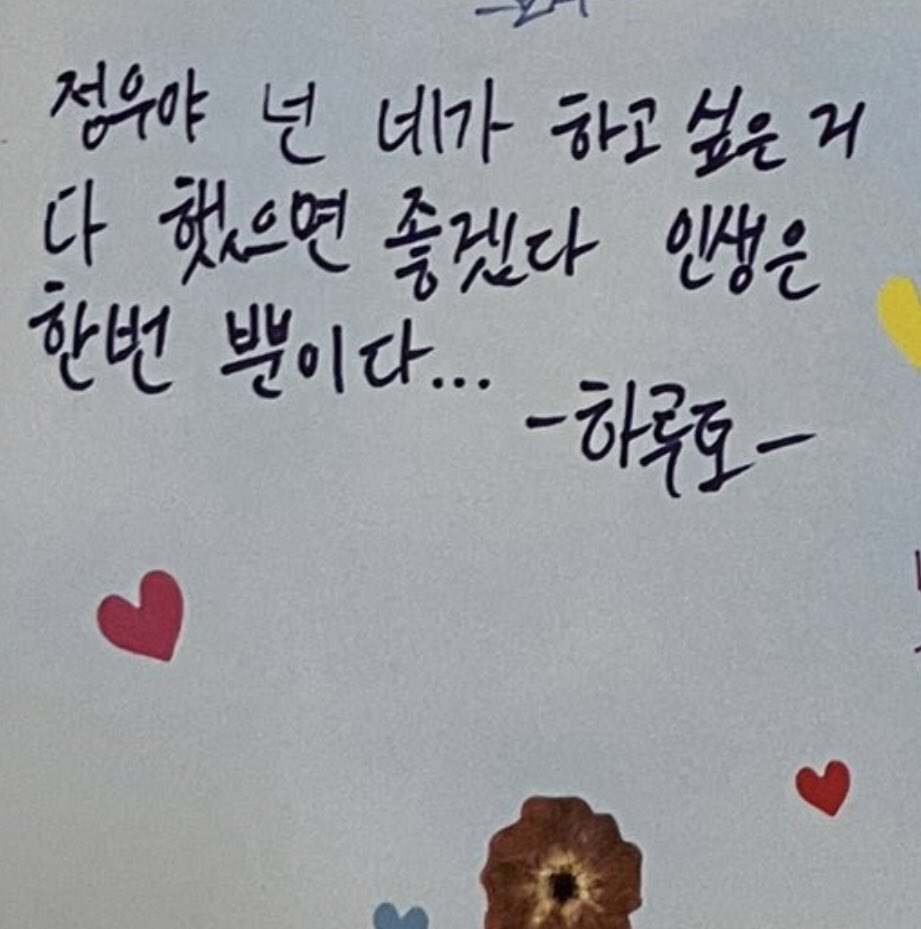 정우야 넌 네가 하고 싶은 거
다 했으면 좋겠다 인생은
한번 뿐이다...
-하루토-